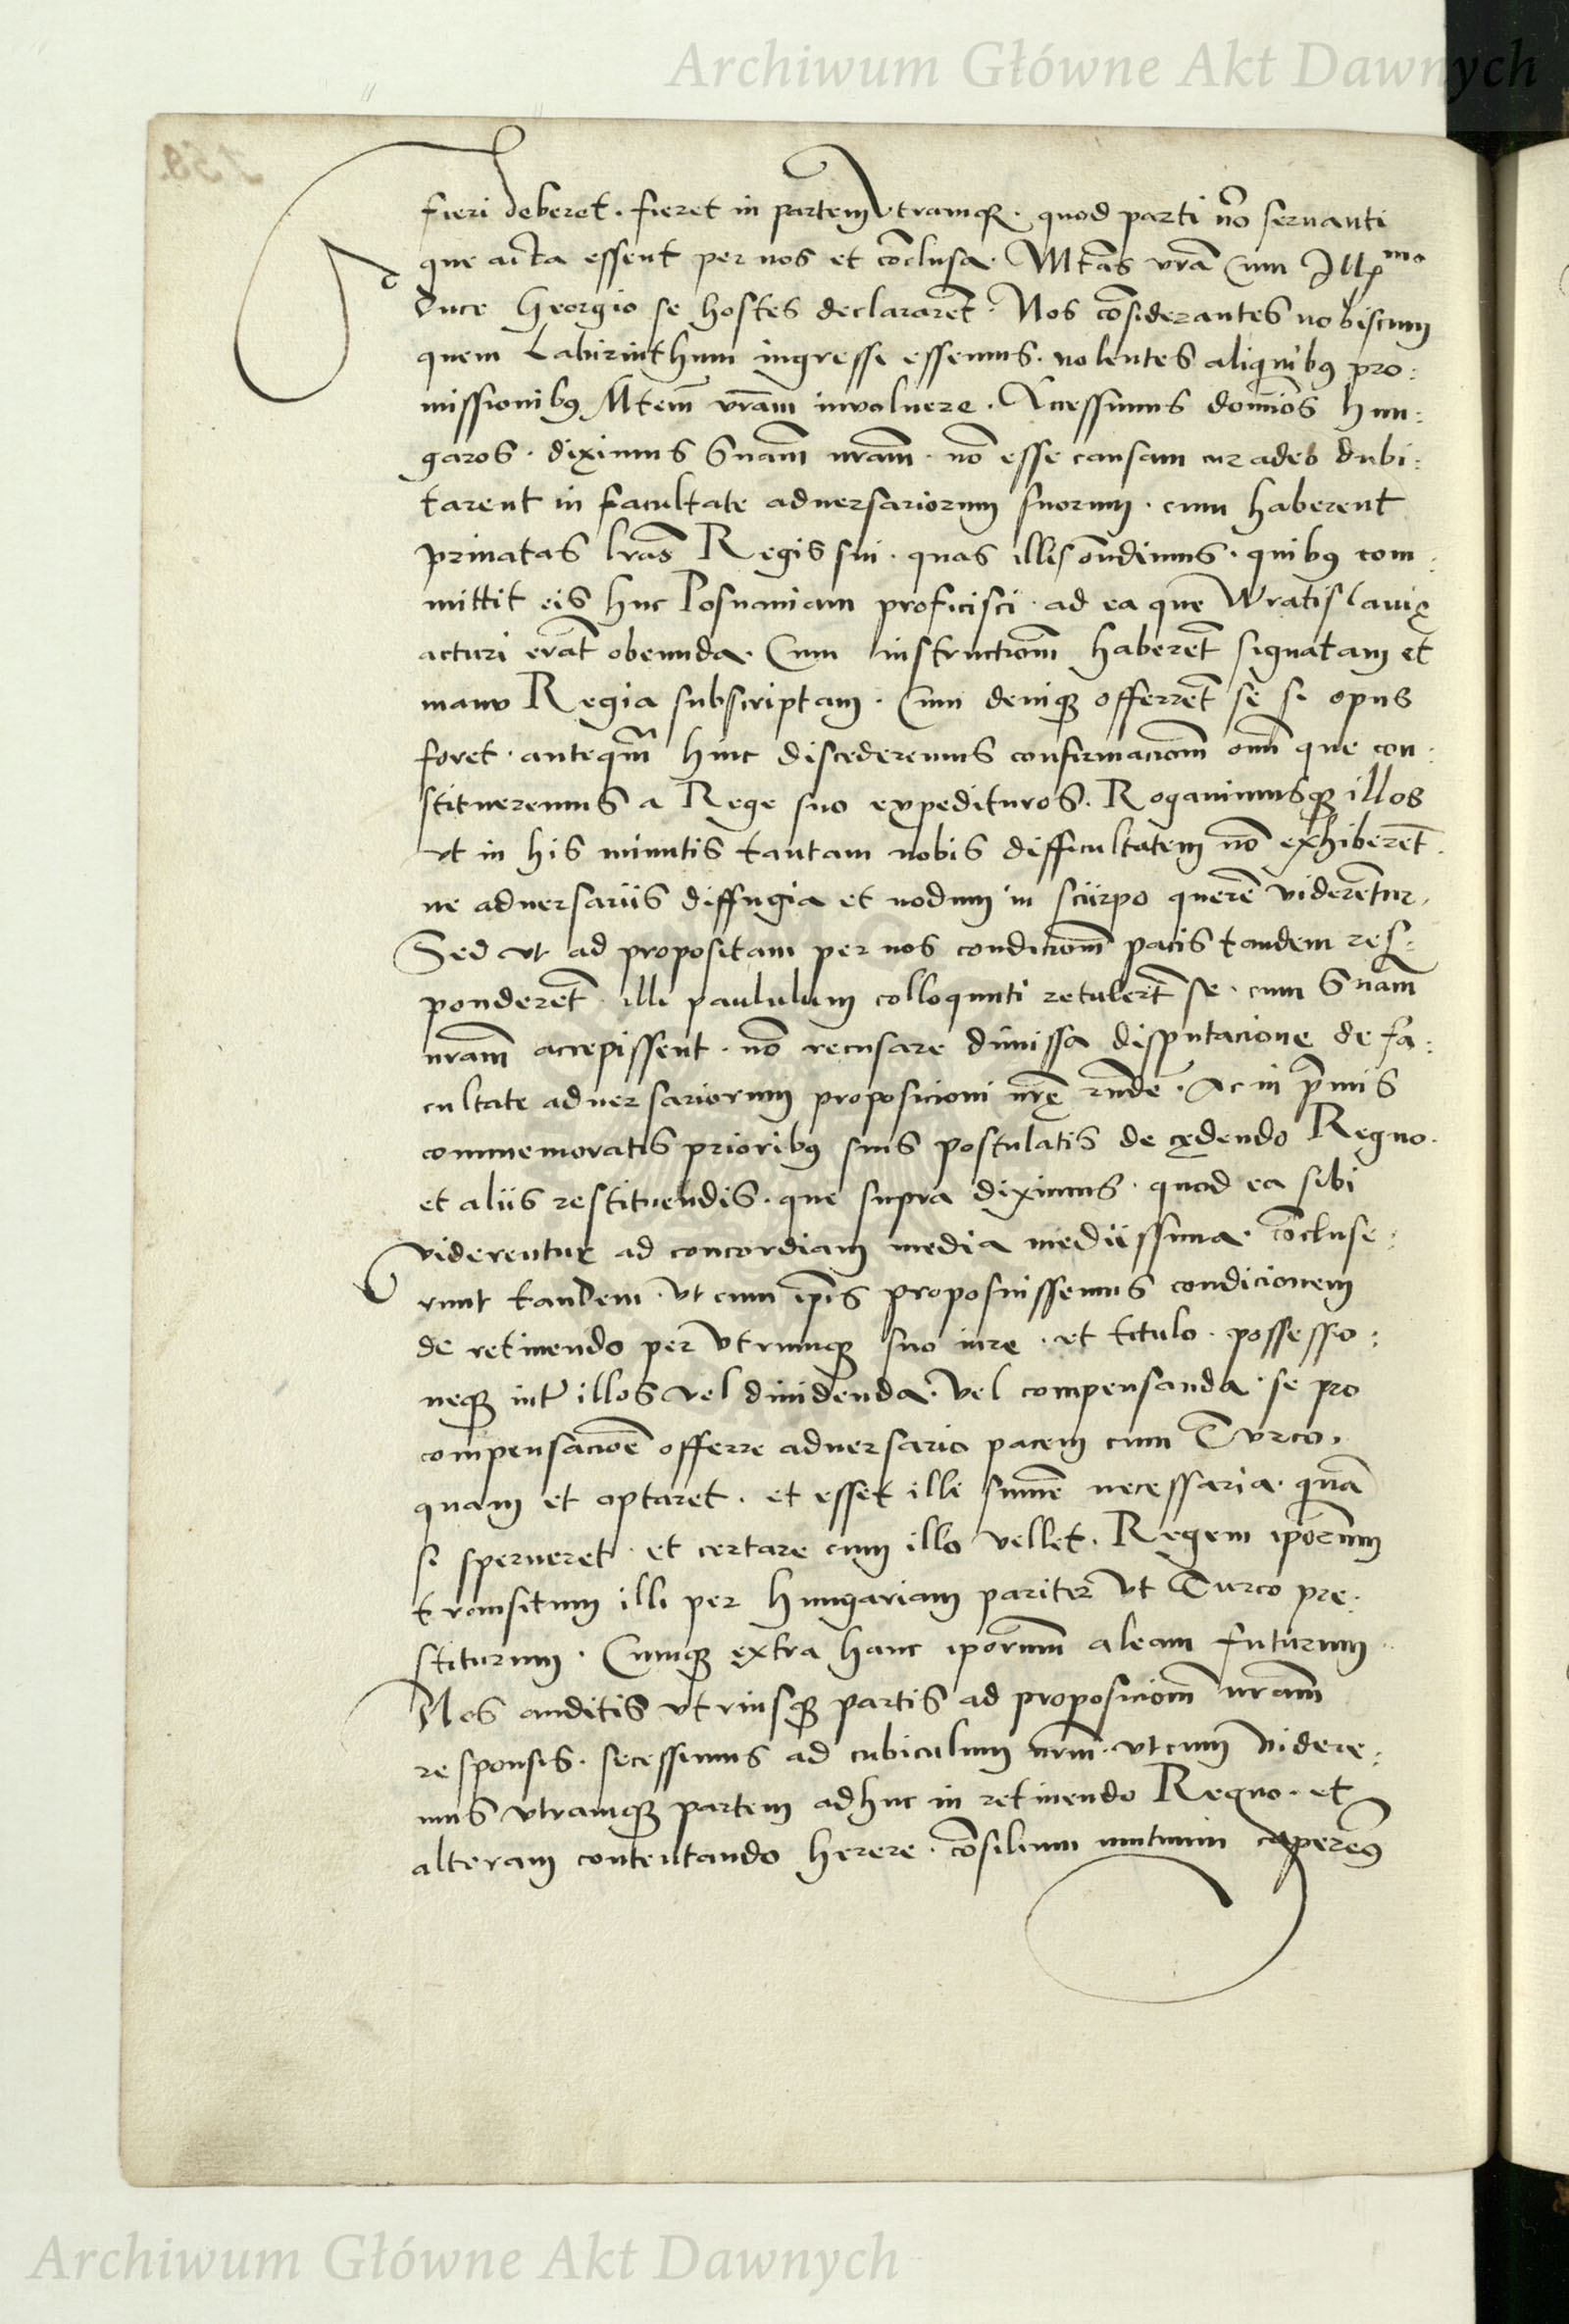 Archiwum Główne Akt Dawnych
fieri deberet. fieret in partem vtramqz. quod parti nõ seruanti
que acta essent per nos et cõclusa. Mtãs vrã Cum Illmo
Duce Georgio se hostes declararẽt. Nos cõsiderantes nobiscum
quem Labirinthum ingressi essemus. nolentes aliquibus pro:
missionibus Mtem̃ vrãm inuoluere. Accessimus domiõs hun:
garos. diximus Snãm nrãm. nõ esse causam cur adeo dubi:
tarent in facultate aduersariorum suorum. cum haberent
priuatas lrãs Regis sui. quas illis oñdimus. quibus com:
mittit eis huc Posnaniam proficisci. ad ea que Wratislauię
acturi erãt obeunda. Cum instructiom̃ haberẽt signatam et
manu Regia subscriptam. Cum deniqz offerrẽt se si opus
foret. anteqm̃ hinc discederemus confirmaciom̃ oĩm que con:
stitueremus a Rege suo expedituros. Rogauimusqz illos
vt in his minutis tantam nobis difficultatem nõ exhiberẽt.
ne aduersariis diffugia et nodum in sciirpo querẽ viderẽtur.
Sed vt ad propositam per nos condiciom̃ pacis tandem res:
ponderẽt. illi paululum colloquuti retulerũt se. cum Snãm
nrãm accepissent. nõ recusare dimissa disputacione de fa:
cultate aduersariorum proposicioni nrę rñdẽ. Ac in p̃mis
commemoratis prioribus suis postulatis de cędendo Regno.
et aliis restituendis. que supra diximus. quod ea sibi
viderentur ad concordiam media mediissima. cõcluse:
runt tandem. vt cum ip̃is proposuissemus condicionem
de retinendo per vtrumqz suo iure. et titulo. possessio:
neqz intr̃ illos vel diuidenda. vel compensanda. se pro
compensaciõe offerre aduersario pacem cum Turco.
quam et optaret. et esset illi summẽ necessaria. quã
si sperneret. et certare cum illo vellet. Regem ip̃orum
transitum illi per Hungariam pariter vt Turco pre:
stiturum. Cumqz extra hanc ip̃orum aleam futurum.
Nos auditis vtriusqz partis ad proposiciom̃ nrãm
responsis. secessimus ad cubiculum nrm̃. vt cum videre:
mus vtramqz partem adhuc in retinendo Regno. et
alteram contentando herere. cõsilium mutuum caperemus
Archiwum Główne Akt Dawnych